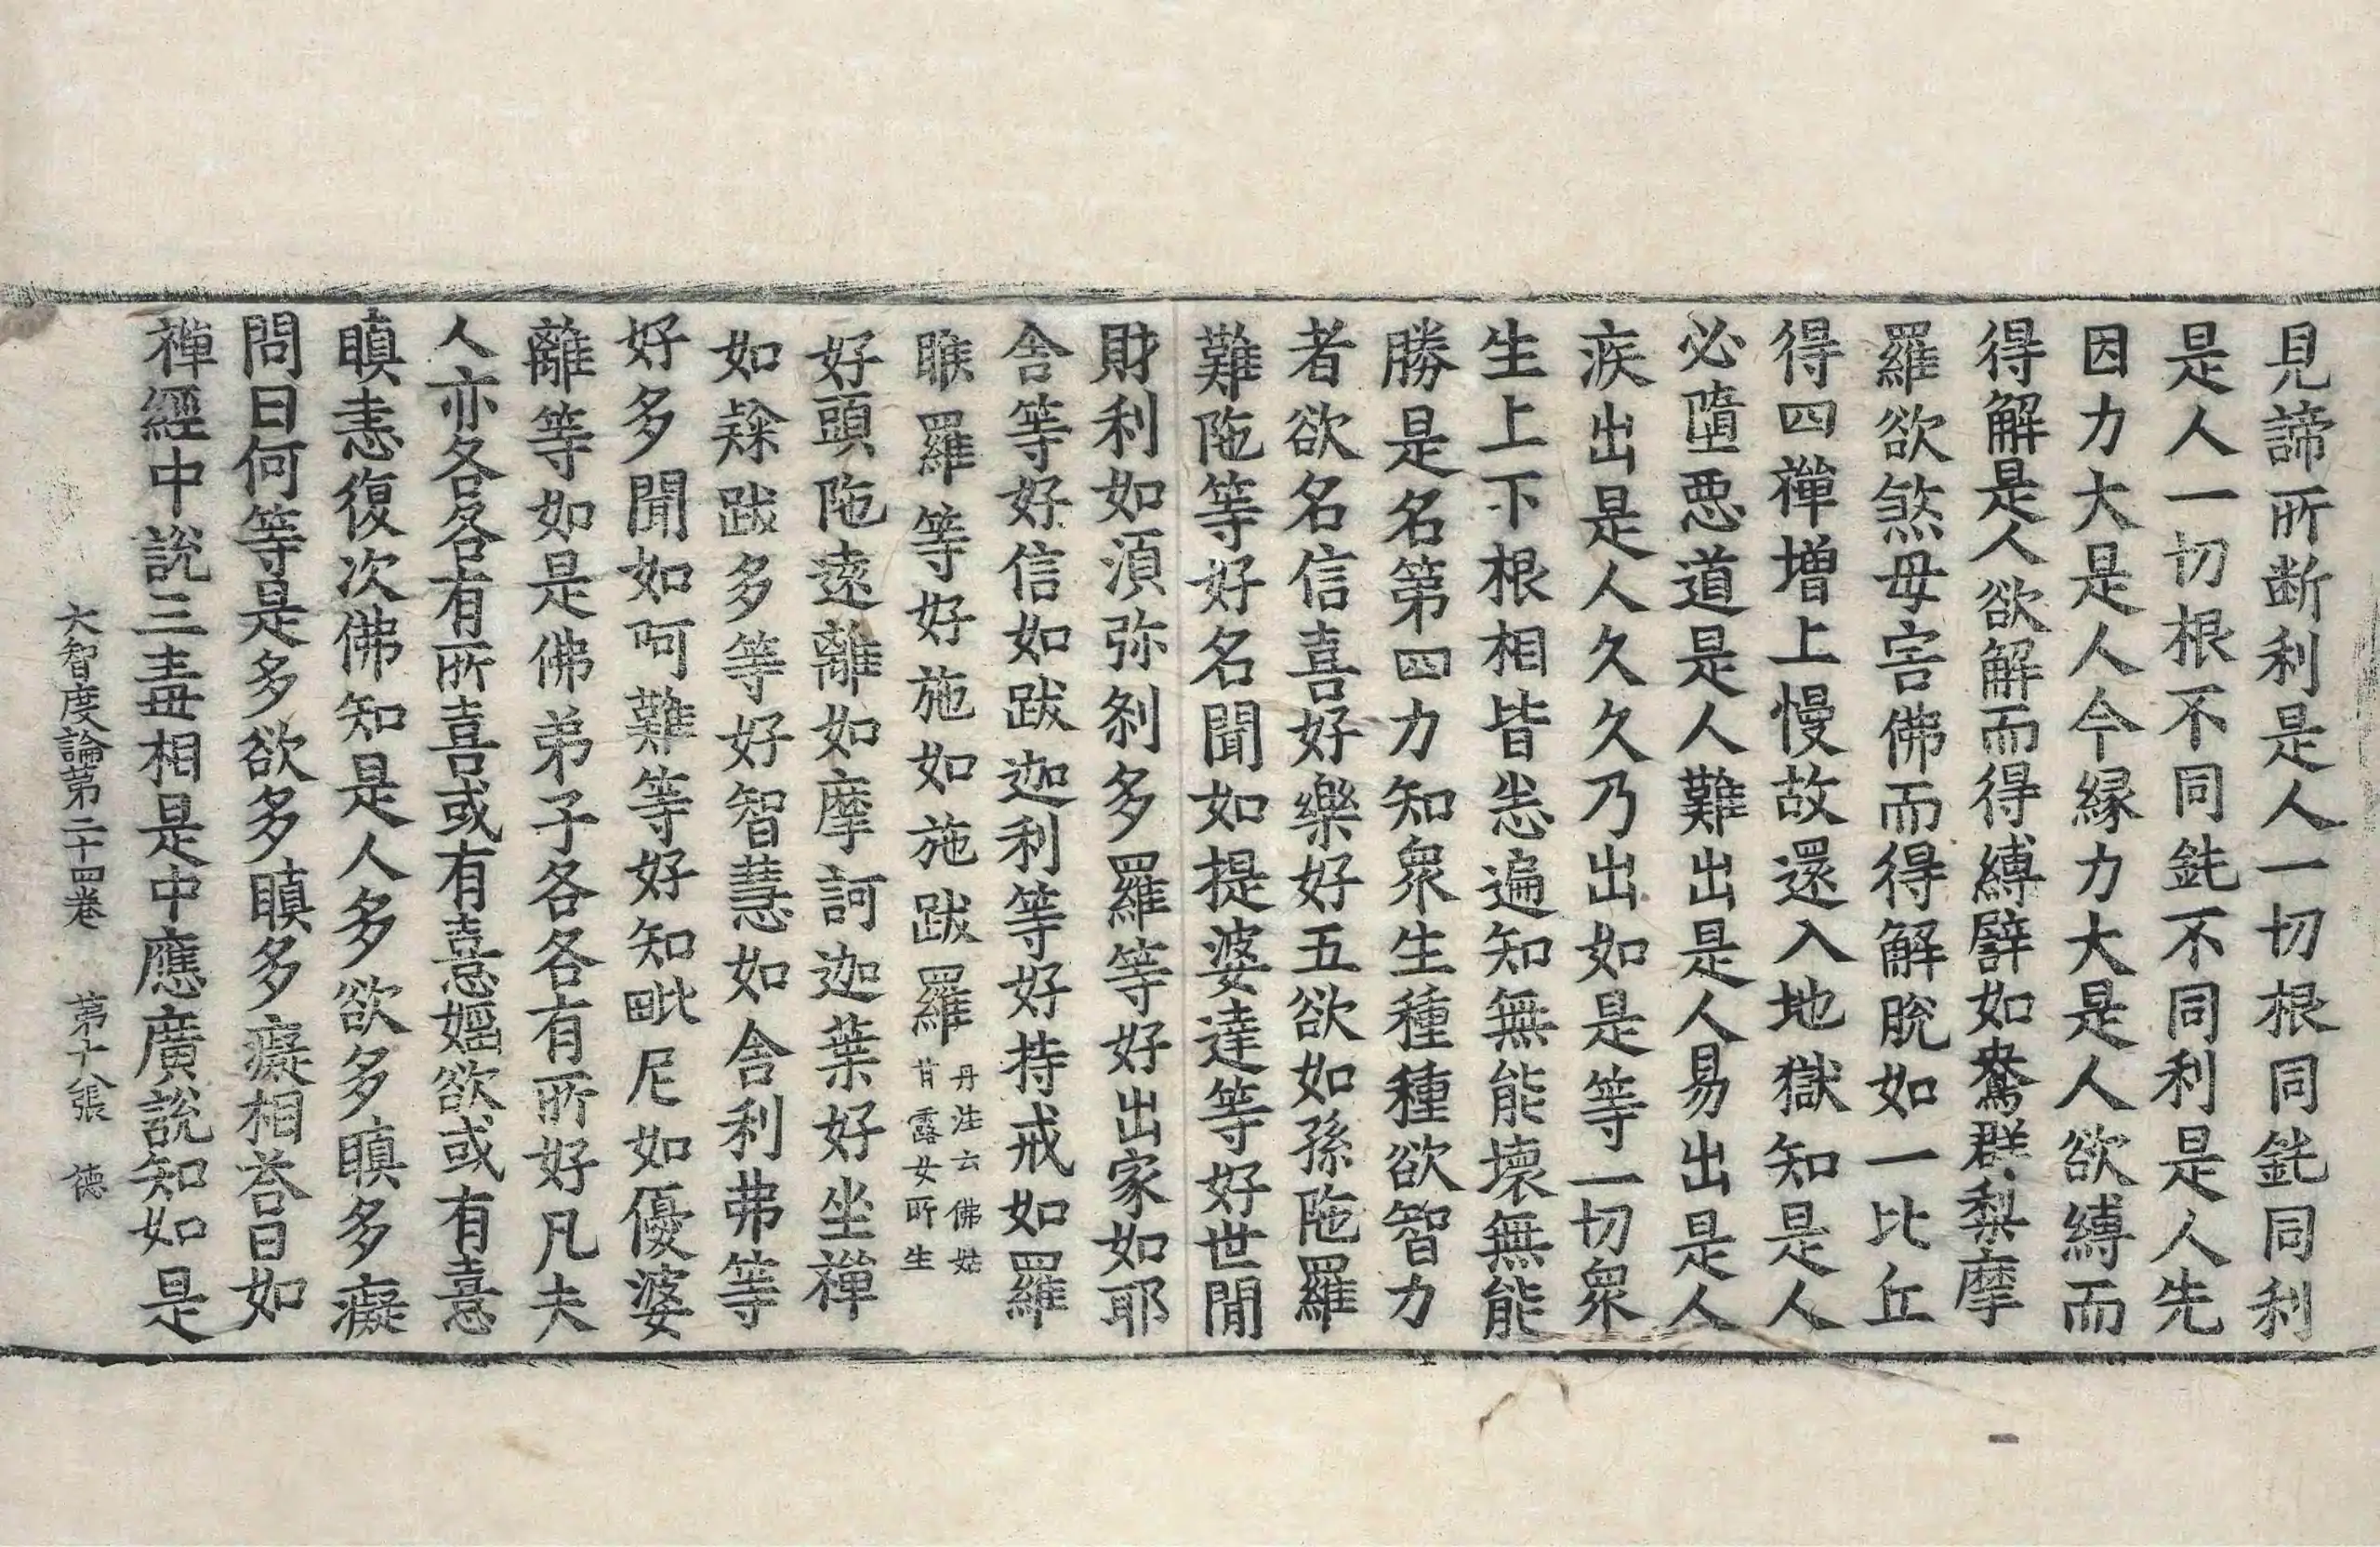 見諦所断利是人一切根同鈍同利
是人一切根不同鈍不同利是人先
因力大是人今縁力大是人欲縛而
得解是人欲解而得縛譬如鴦群梨摩
羅欲煞母害佛而得解脫如一比丘
得四禪增上慢故還入地獄知是人
必墮惡道是人難出是人易出是人
疾出是人久久乃出如是等一切衆
生上下根相皆悉遍知無能壞無能
勝是名第四力知衆生種種欲智力
者欲名信喜好樂好五欲如孫陁羅
難陁等好名聞如提婆達等好世閒
財利如湏弥刹多羅等好出家如耶
舍等好信如跋迦利等好持戒如羅
睺羅等好施如施跋羅丹注云佛姑甘露女所生
好頭陁遠離如摩訶迦葉好坐禪
如𨽻跋多等好智慧如舍利弗等
好多聞如阿難等好知毗尼如優婆
離等如是佛弟子各各有所好凡夫
人亦各各有所喜或有憙婬欲或有憙
瞋恚復次佛知是人多欲多瞋多癡
問曰何等是多欲多瞋多癡相荅曰如
禪經中說三毒相是中應廣說知如是
大智度論第二十四卷 第十八張 德